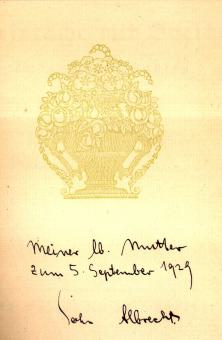 Meiner lb. Mutter
zum 5. September 1929
Sohn Albrecht